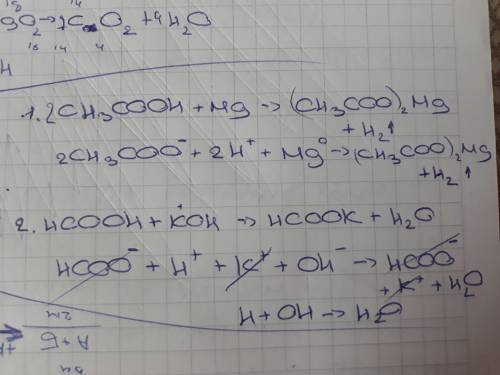 18 14
9O₂→7C O₂ + 4H₂O
18 14 4
H
1. 2CH₃COOH + Mg → (CH₃COO)₂Mg
+ H₂↑
2CH₃COO⁻ + 2H⁺ + Mg⁰ → (CH₃COO)₂Mg
+ H₂↑
2. HCOOH + KOH → HCOOK + H₂O
HCOO⁻ + H⁺ + K⁺ + OH⁻ → HCOO⁻
+ K⁺ + H₂O
H + OH → H₂O
А+Б